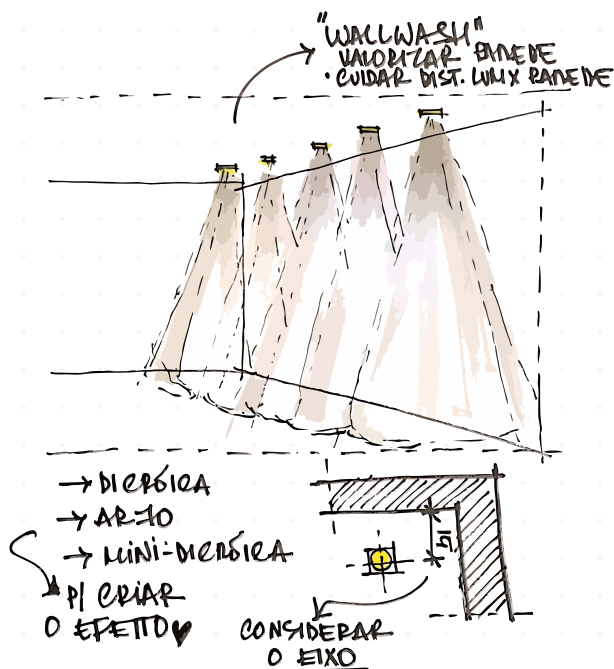 "WALLWASH"
VALORIZAR PAREDE
• CUIDAR DIST. LUM X PAREDE
→ DICRÓICA
→ AR70
→ MINI-DICRÓICA
P/ CRIAR
O EFEITO ♥
15
CONSIDERAR
O EIXO